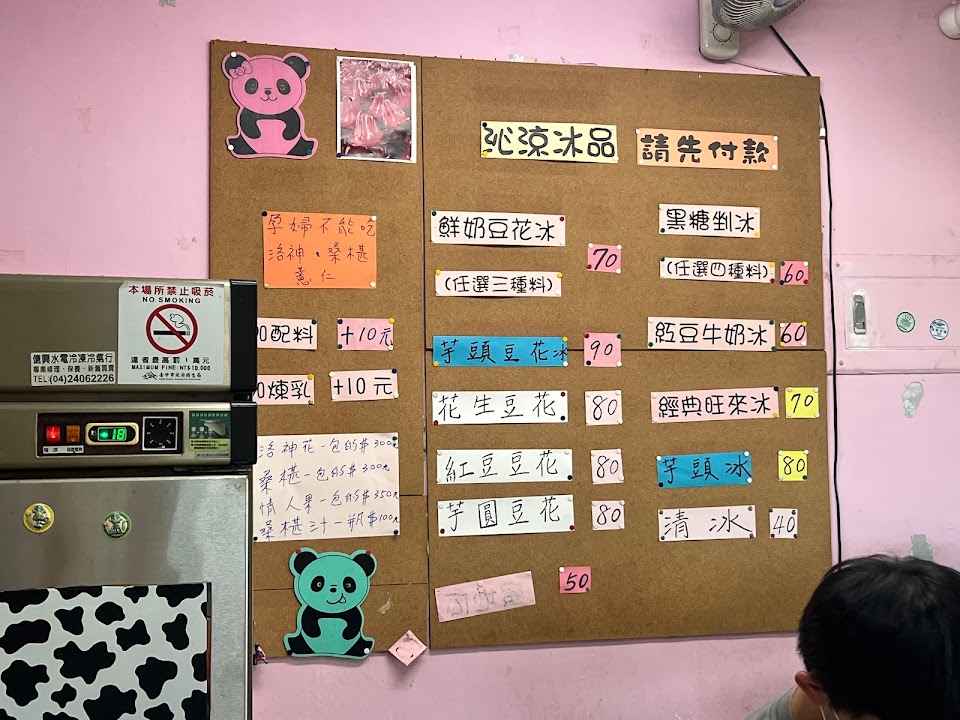 沁涼冰品
請先付款
孕婦不能吃
洛神、桑椹
薏仁
配料 +10元
煉乳 +10元
洛神花一包的$300元
桑椹一包的$300元
情人果一包的$350元
桑椹汁一瓶$100元
鮮奶豆花冰
(任選三種料)
70
芋頭豆花冰 90
花生豆花 80
紅豆豆花 80
芋圓豆花 80
50
黑糖剉冰
(任選四種料) 60
紅豆牛奶冰 60
經典旺來冰 70
芋頭冰 80
清冰 40
本場所禁止吸菸
NO SMOKING
違者最高罰1萬元
MAXIMUM FINE:NT$10,000
臺中市政府衛生局
億興水電冷凍冷氣行
專業修理、保養、新舊買賣
TEL:(04)24062226
-18